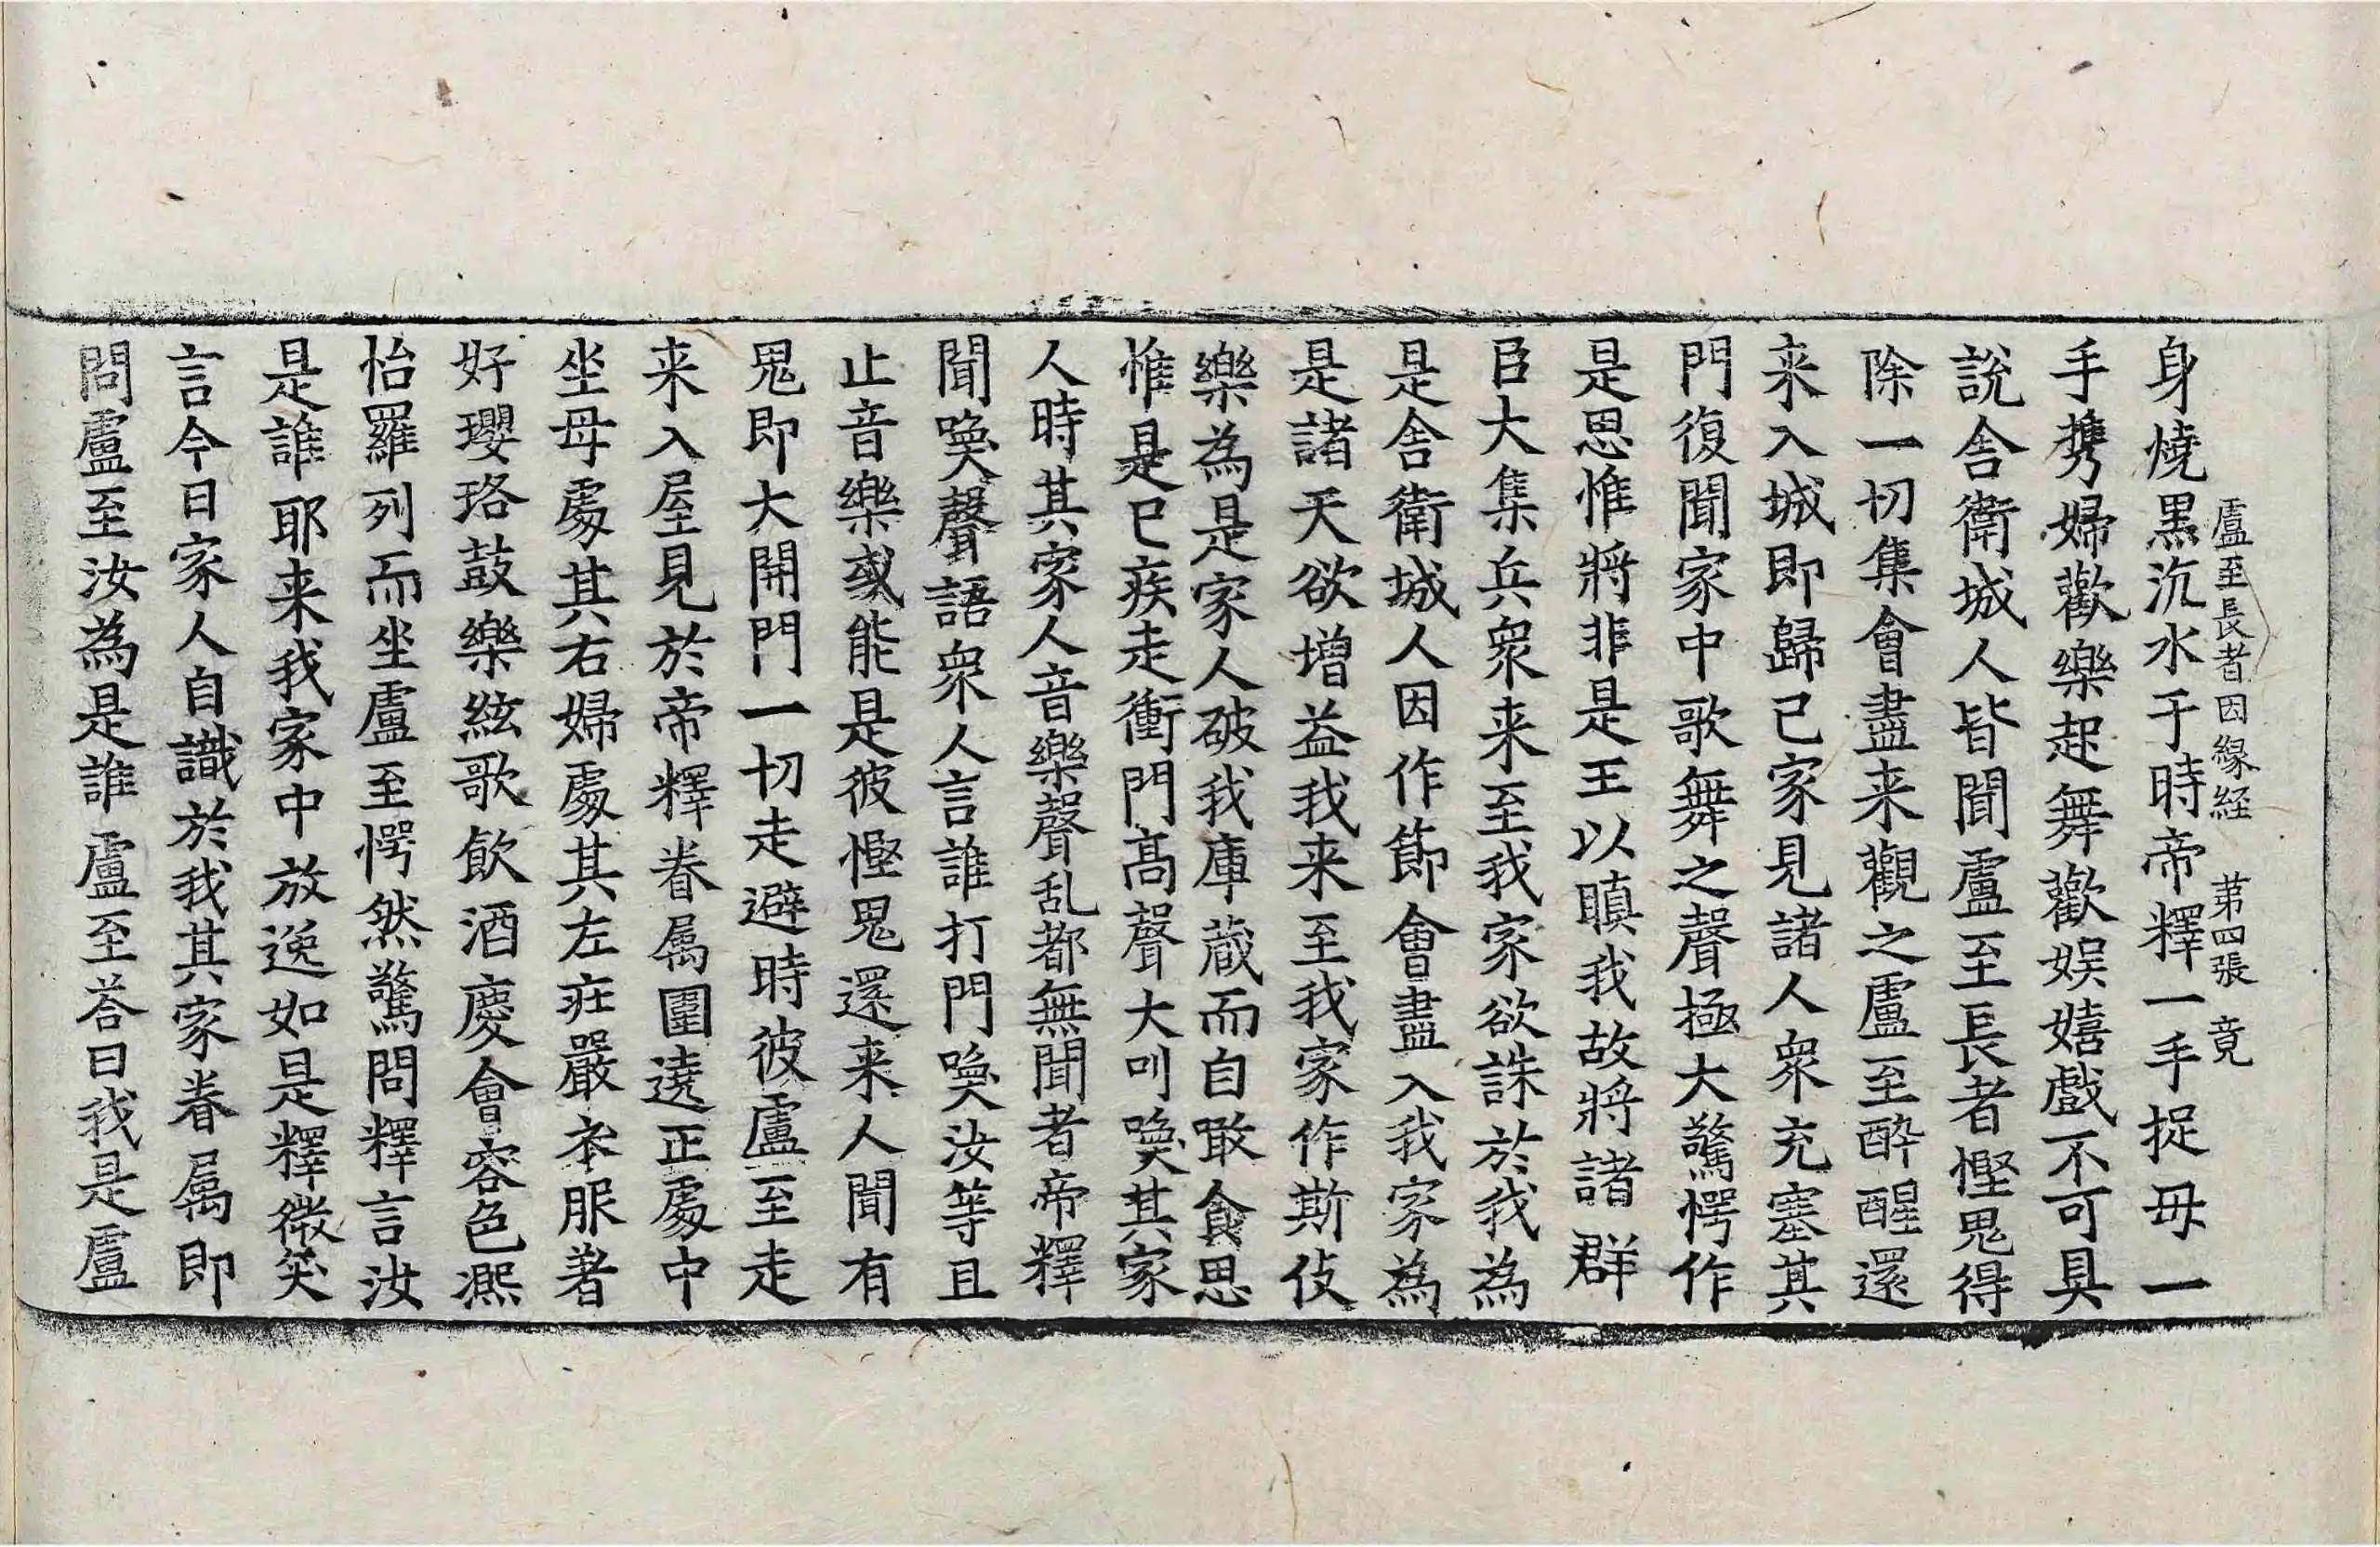 盧至長者因緣経　苐四張　竟
身燒黒沉水于時帝釋一手捉母一
手携婦歡樂起舞歡娱嬉戲不可具
說舎衛城人皆聞盧至長者慳鬼得
除一切集會盡来觀之盧至醉醒還
来入城即歸已家見諸人衆充塞其
門復聞家中歌舞之聲極大驚愕作
是思惟將非是王以瞋我故將諸群
臣大集兵衆来至我家欲誅於我為
是舎衛城人因作莭會盡入我家為
是諸天欲增益我来至我家作斯伎
樂為是家人破我庫蔵而自噉食思
惟是已疾走衝門髙聲大叫喚其家
人時其家人音樂聲乱都無聞者帝釋
聞喚聲語衆人言誰打門喚汝等且
止音樂或能是彼慳鬼還来人聞有
鬼即大開門一切走避時彼盧至走
来入屋見於帝釋眷属圍遶正處中
坐母處其右婦處其左莊嚴衣服著
好瓔珞鼓樂絃歌飲酒慶會容色熈
怡羅列而坐盧至愕然驚問釋言汝
是誰耶来我家中放逸如是釋微笑
言今日家人自識於我其家眷属即
問盧至汝為是誰盧至荅曰我是盧